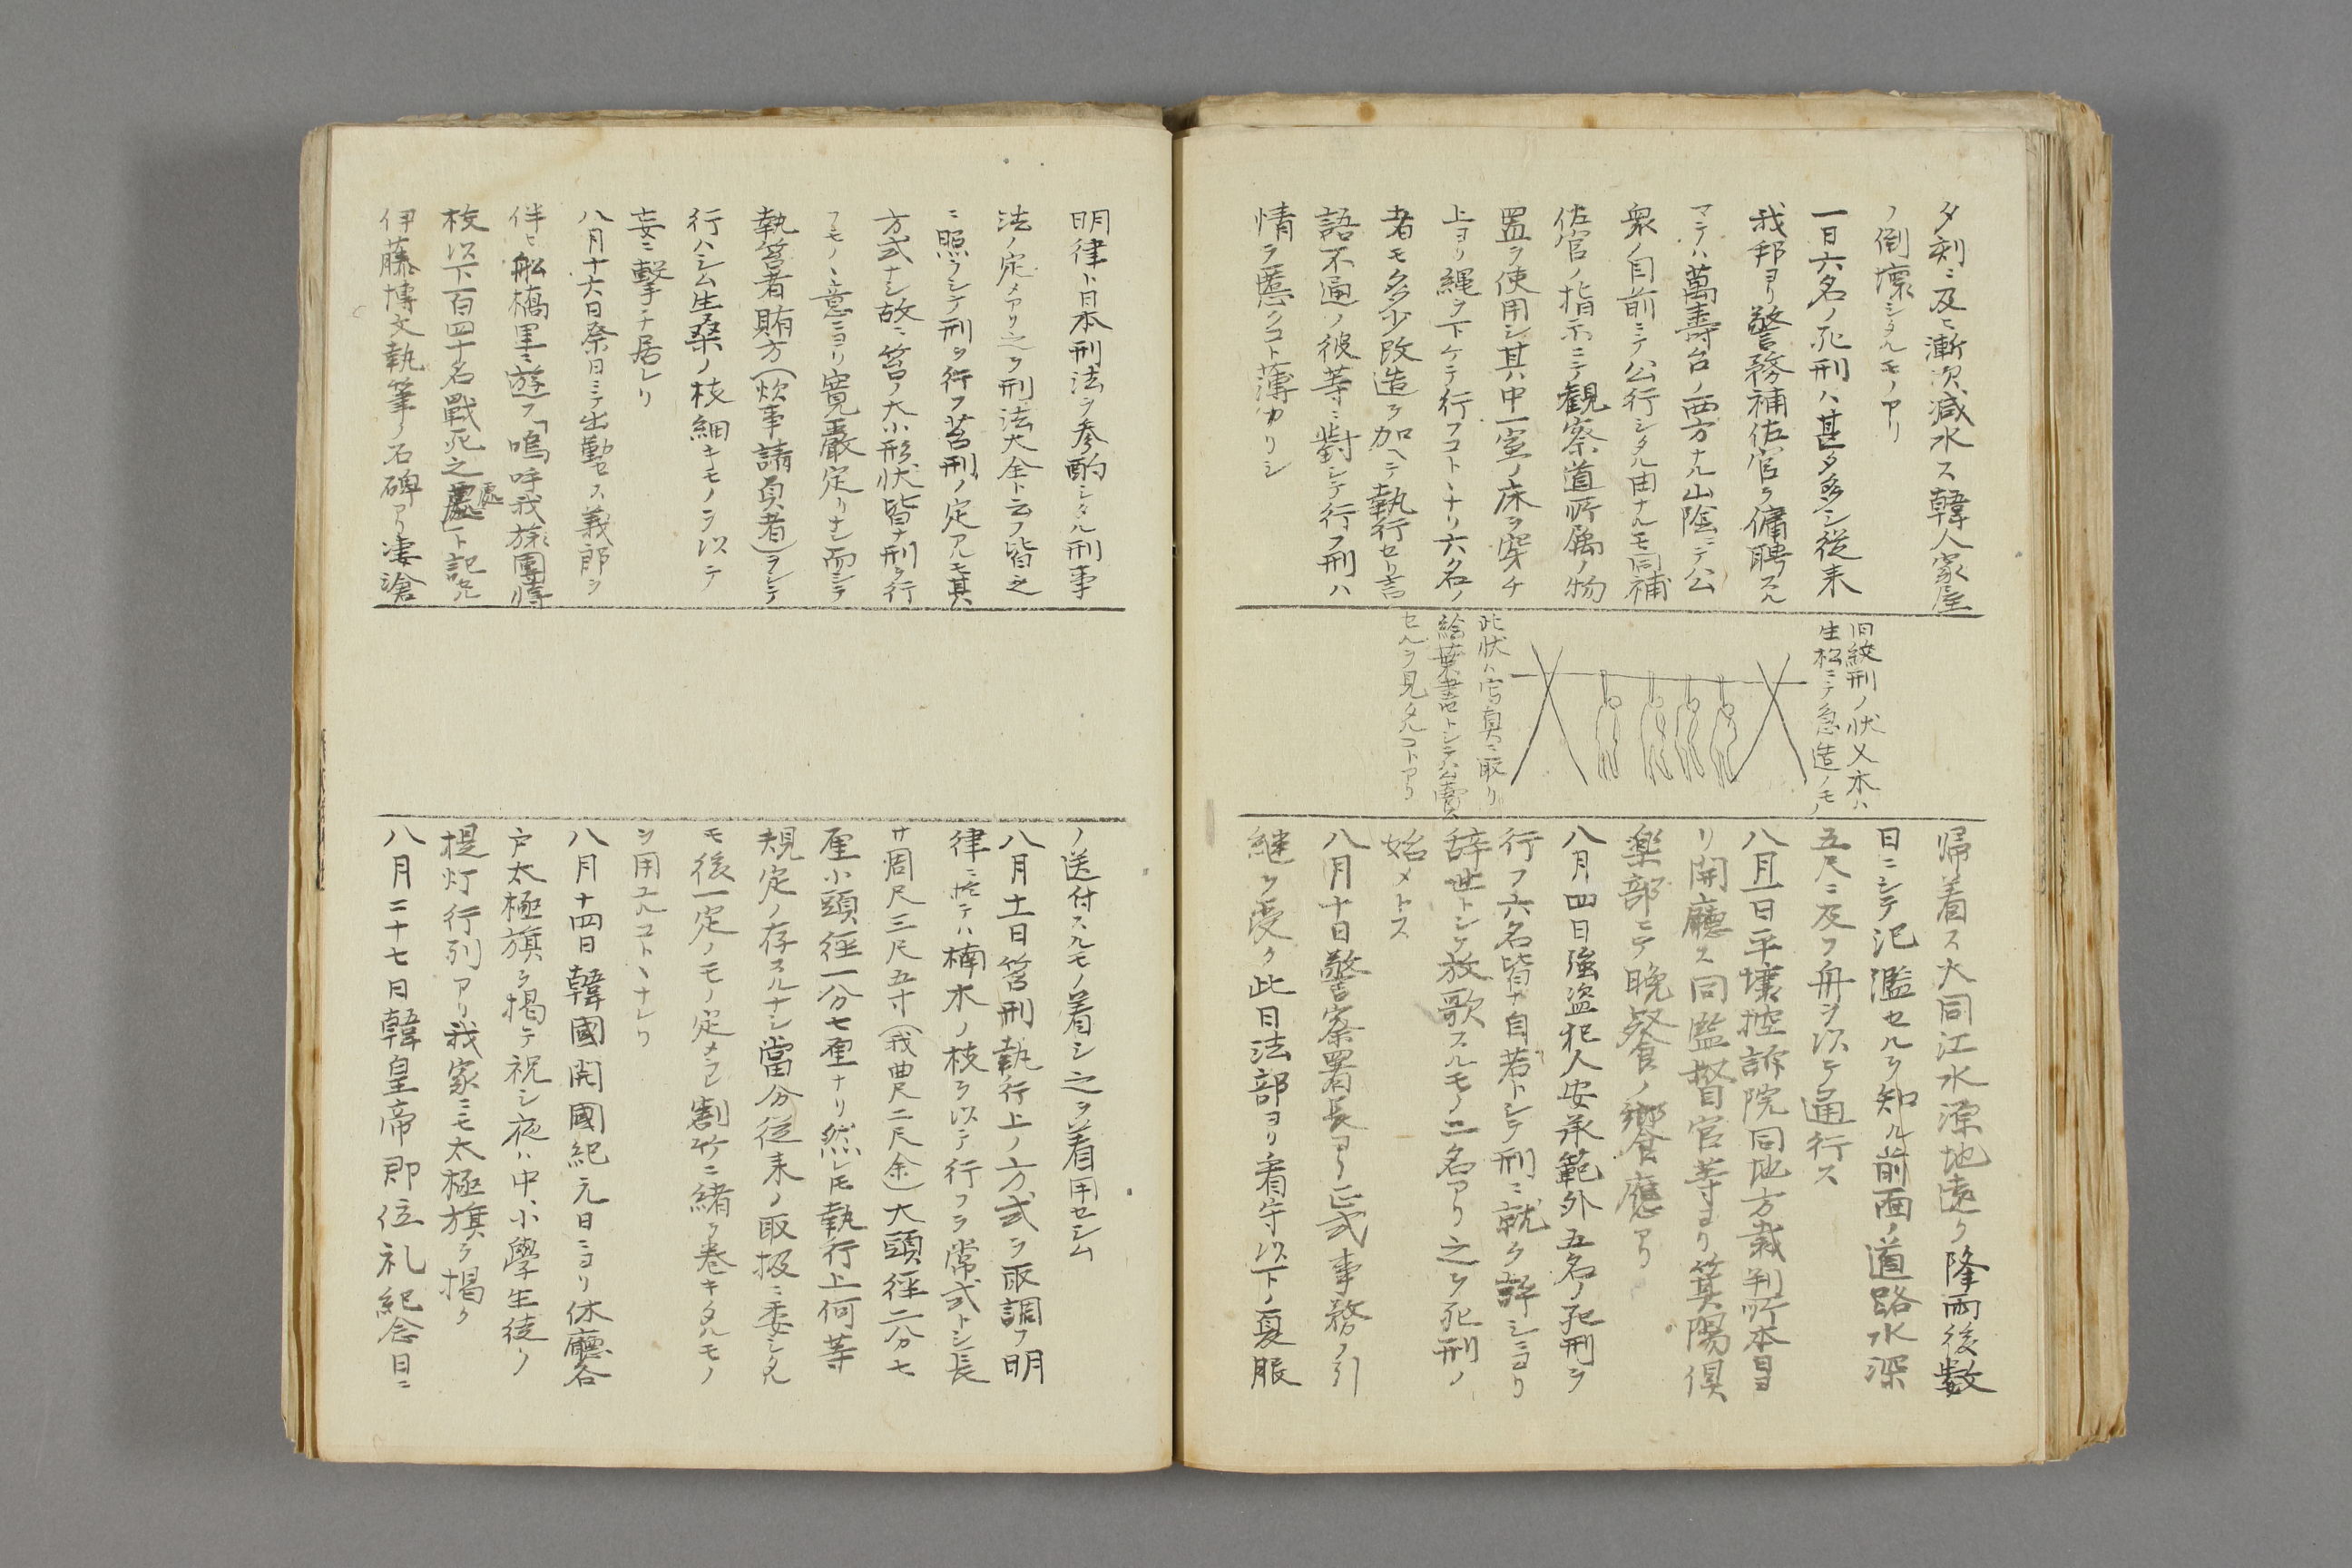 夕刻ニ及ヒ漸次減水ス韓人家屋
ノ倒壊シタルモノアリ
一日六名ノ死刑ハ甚タ多シ従来
我邦ヨリ警務補佐官ヲ傭聘スル
マテハ萬壽台ノ西方ナル山陰ニテ公
衆ノ目前ニテ公行シタル由ナルモ同補
佐官ノ指示ニテ観察道所属ノ物
置ヲ使用シ其中一室ノ床ヲ穿チ
上ヨリ縄ヲ下ケテ行フコトヽナリ六名ノ
者モ多少改造ヲ加ヘテ執行セリ言
語不通ノ彼等ニ對シテ行フ刑ハ
情ヲ惹クコト薄カリシ
旧絞刑ノ状乂木ハ
生松ニテ急造ノモノ
此状ハ写真ニ取リ
絵葉書トシテ公賣
セルヲ見タルコトアリ
帰着ス大同江水源地遠ク降雨後数
日ニシテ氾濫セルヲ知ル前面ノ道路水深
五尺ニ及フ舟ヲ以テ通行ス
八月一日平壌控訴院同地方裁判所本日ヨ
リ開廳ス同監督官等ヨリ箕陽倶
楽部ニテ晩餐ノ饗應アリ
八月四日強盗犯人安承範外五名ノ死刑ヲ
行フ六名皆ナ自若トシテ刑ニ就ク酔シヨリ
辞世トシテ放歌スルモノ二名アリ之ヲ死刑ノ
始メトス
八月十日警察署長ヨリ正式事務ノ引
継ヲ受ク此日法部ヨリ看守以下ノ夏服
明律ト日本刑法ヲ参酌シタル刑事
法ノ定メアリ之ヲ刑法大全ト云フ皆之
ニ照ラシテ刑ヲ行フ笞刑ノ定アルモ其
方式ナシ故ニ笞ノ大小形状皆ナ刑ヲ行
フモノヽ意ニヨリ寛嚴定リナシ而シテ
執笞者賄方(炊事請負者)ヲシテ
行ハシム生桑ノ枝細キモノヲ以テ
妄ニ撃チ居レリ
八月十六日祭日ニテ出勤セス義郎ヲ
伴ヒ船橋里ニ遊フ「嗚呼我旅團将
校以下百四十名戰死之處」ト記セル
伊藤博文執筆ノ石碑アリ凄滄
ノ送付スルモノ着シ之ヲ着用セシム
八月十一日笞刑執行上ノ方式ヲ取調フ明
律ニ於テハ楠木ノ枝ヲ以テ行フヲ常式トシ長
サ周尺三尺五寸(我曲尺二尺余)大頭径二分七
厘小頭径一分七厘ナリ然レモ執行上何等
規定ノ存スルナシ當分従来ノ取扱ニ委シタル
モ後一定ノモノ定メラレ割竹ニ緒ヲ巻キタルモノ
ヲ用ユルコトヽナレリ
八月十四日韓國開國紀元日ニヨリ休廳各
戸太極旗ヲ掲テ祝シ夜ハ中小學生徒ノ
提灯行列アリ我家ニモ太極旗ヲ掲ク
八月二十七日韓皇帝即位礼紀念日ニ